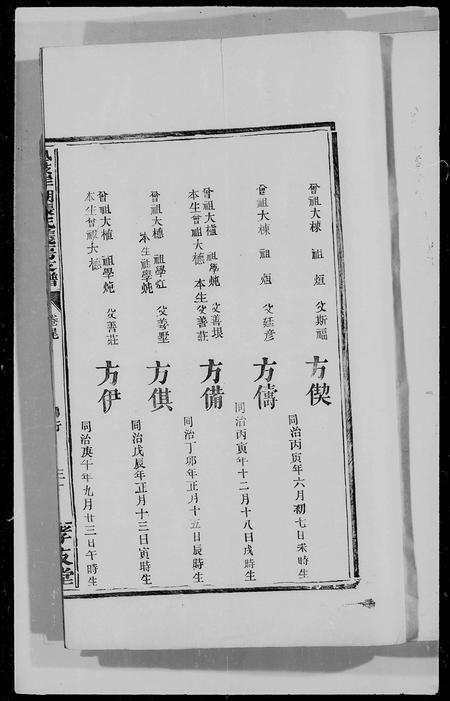 曾祖大棟 祖烜 父斯福
方偰
同治丙寅年六月初七日未時生
曾祖大棟 祖烜 父廷彥
方儔
同治丙寅年十二月十八日戌時生
曾祖大㯽 祖學炖 父善垻
本生曾祖大橞 本生父善莊
方備
同治丁卯年正月十五日辰時生
曾祖大橞 祖學 父善墅
本生祖學炖
方倛
同治戊辰年正月十三日寅時生
曾祖大植 祖學炖 父善莊
本生曾祖大橞
方伊
同治庚午年九月廿三日午時生
孝友堂